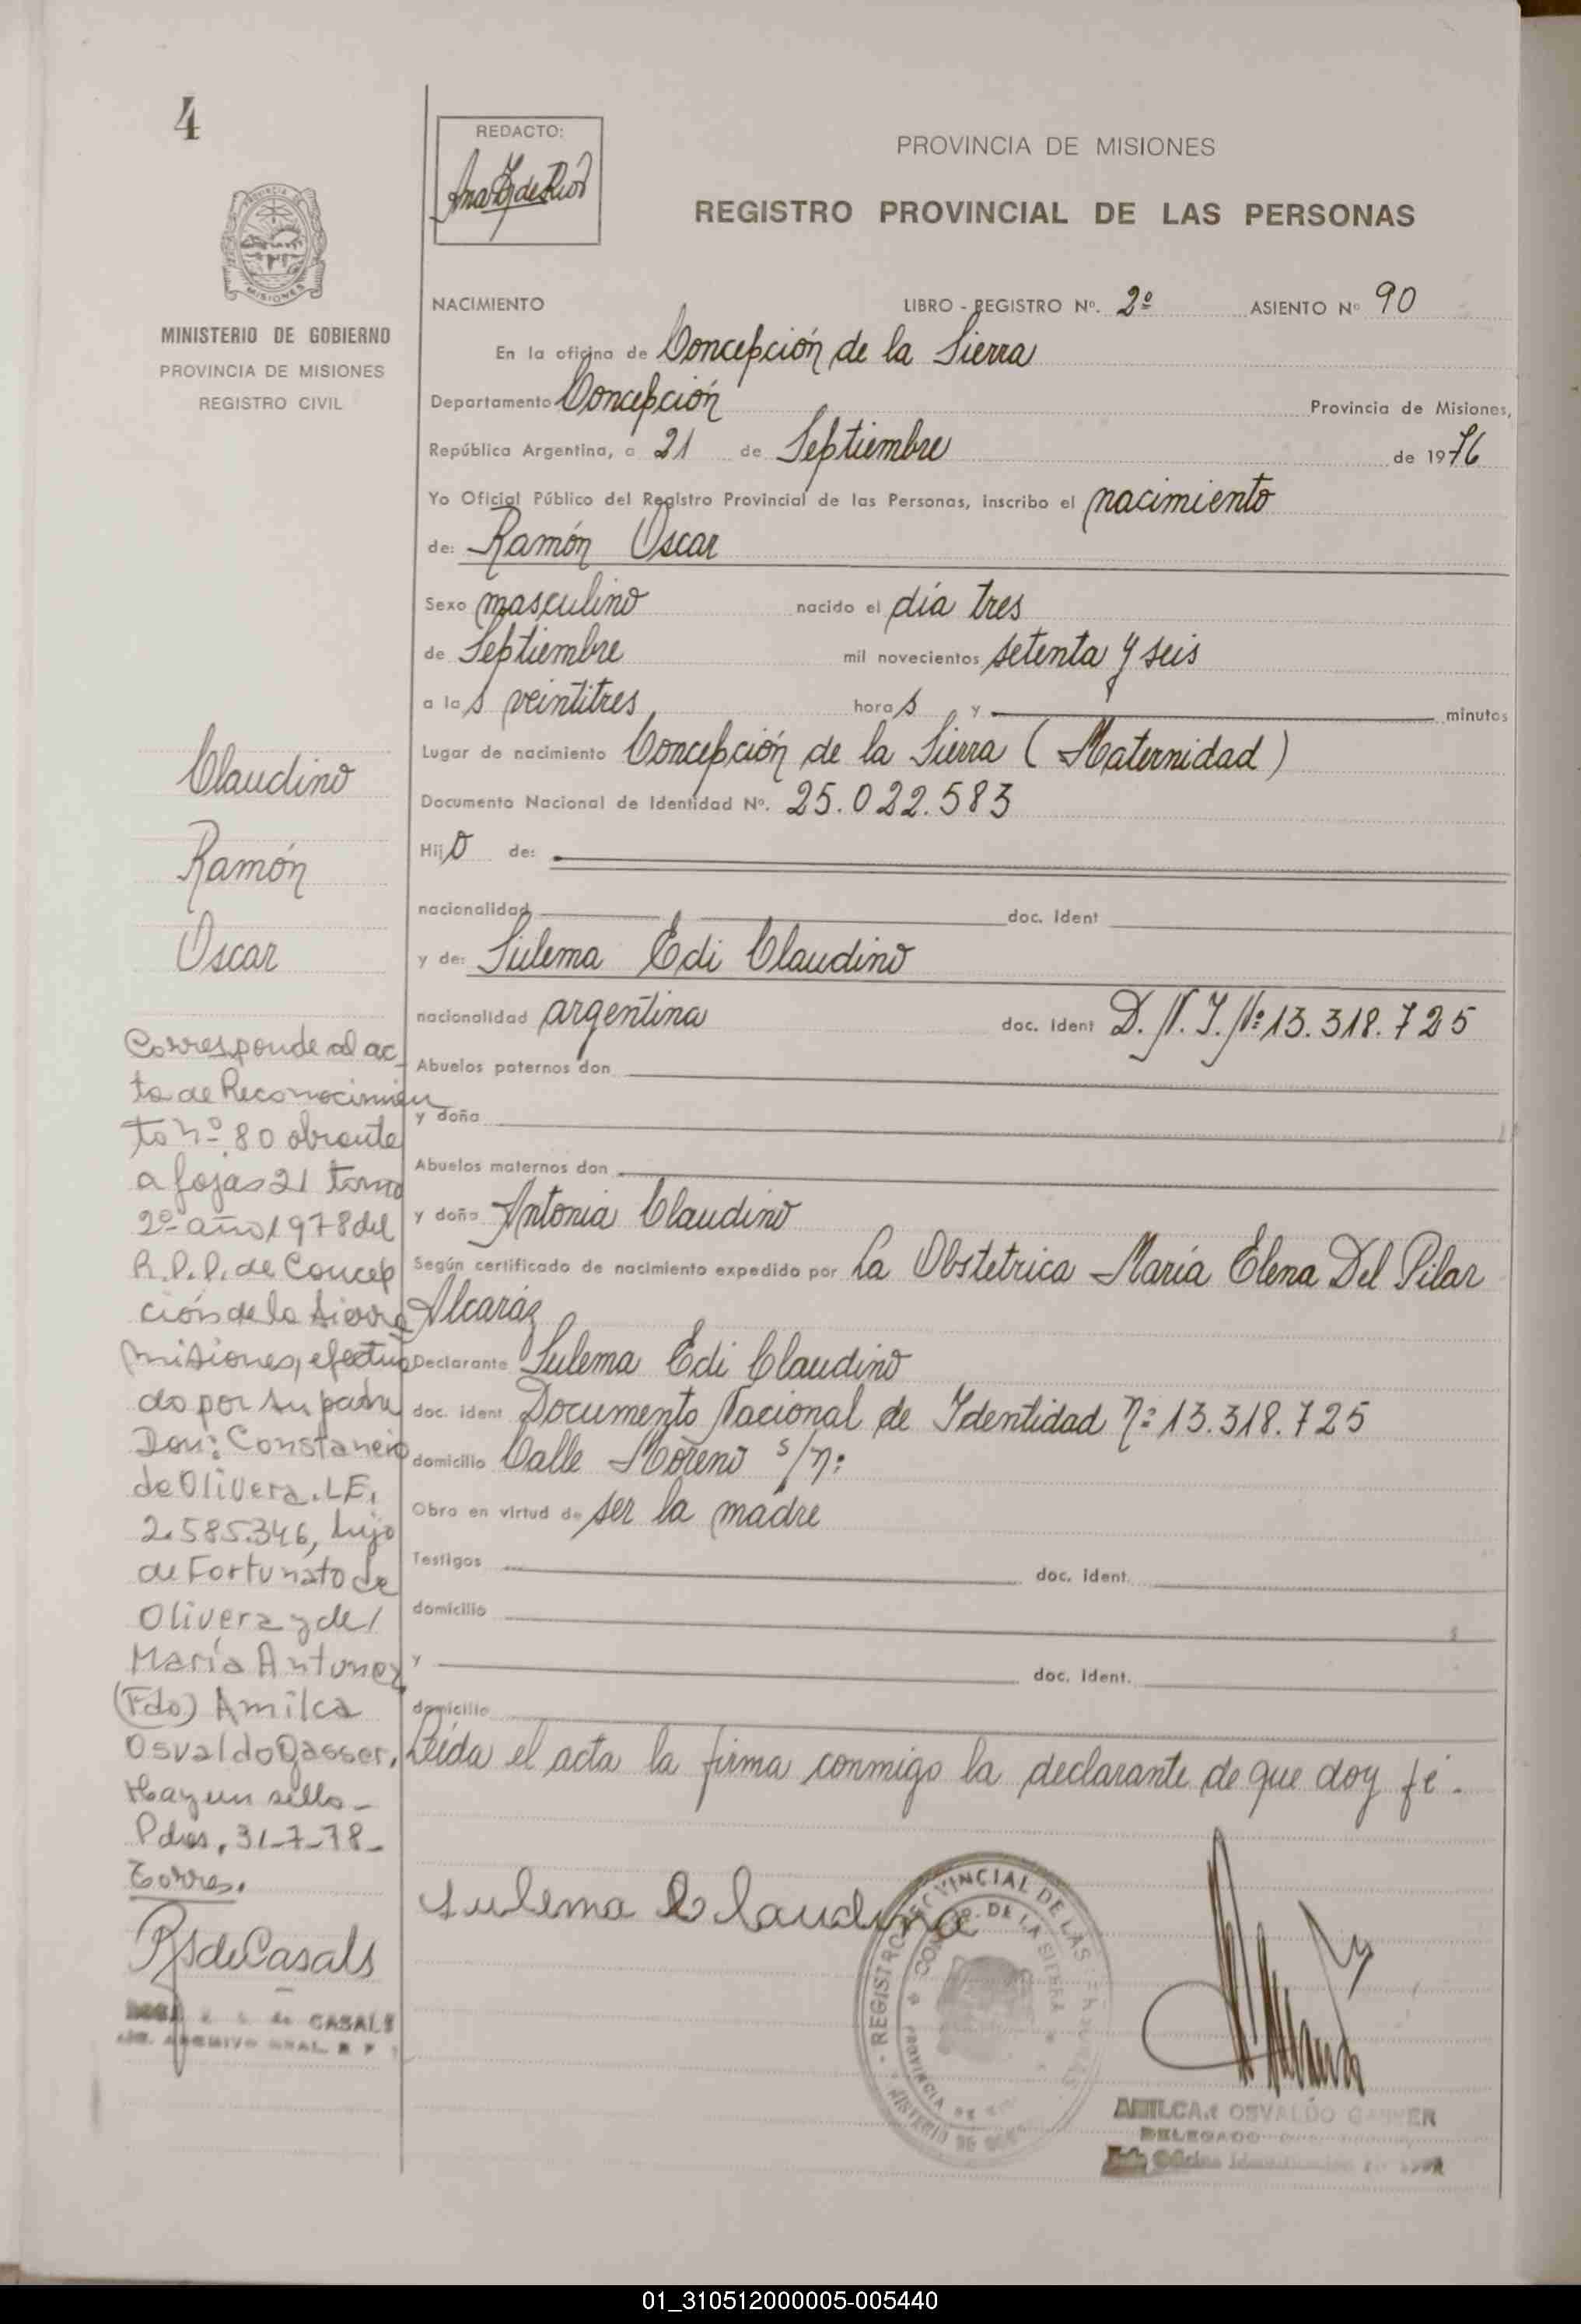 4
PROVINCIA
MISIONES
MINISTERIO DE GOBIERNO
PROVINCIA DE MISIONES
REGISTRO CIVIL
REDACTO:
PROVINCIA DE MISIONES
REGISTRO PROVINCIAL DE LAS PERSONAS
NACIMIENTO LIBRO - REGISTRO Nº. 2º ASIENTO Nº 90
En la oficina de Concepción de la Sierra
Departamento Concepción Provincia de Misiones,
República Argentina, a 21 de Septiembre de 1976
Yo Oficial Público del Registro Provincial de las Personas, inscribo el nacimiento
de: Ramón Oscar
Sexo masculino nacido el día tres
de Septiembre mil novecientos setenta y seis
a las veintitres horas y minutos
Lugar de nacimiento Concepción de la Sierra ( Maternidad )
Documento Nacional de Identidad Nº. 25.022.583
Hijo de:
nacionalidad doc. Ident
y de: Sulema Edi Claudino
nacionalidad argentina doc. Ident D.N.I.Nº: 13.318.725
Abuelos paternos don
y doña
Abuelos maternos don
y doña Antonia Claudino
Según certificado de nacimiento expedido por La Obstetrica María Elena Del Pilar
Alcaráz
Declarante Sulema Edi Claudino
doc. ident Documento Nacional de Identidad Nº: 13.318.725
domicilio Calle Moreno s/nº:
Obra en virtud de ser la madre
Testigos doc. ident.
domicilio
y doc. ident.
domicilio
Leída el acta la firma conmigo la declarante de que doy fé.
Sulema Claudino
AMILCAR OSVALDO GASSER
DELEGADO
Claudino
Ramón
Oscar
Corresponde al ac
ta de Reconocimien
to nº 80 obrante
a fojas 21 tomo
2º año 1978 del
R.P.P. de Concep
ción de la Sierra
Misiones, efectua
do por su padre
Don: Constancio
de Olivera. L.E.
2.585.346, hijo
de Fortunato de
Olivera y de
María Antunez
(Fdo) Amilca
Osvaldo Gasser.
Hay un sello -
Pdas, 31-7-78-
Torres.
RsdeCasals
de CASALS
01_310512000005-005440